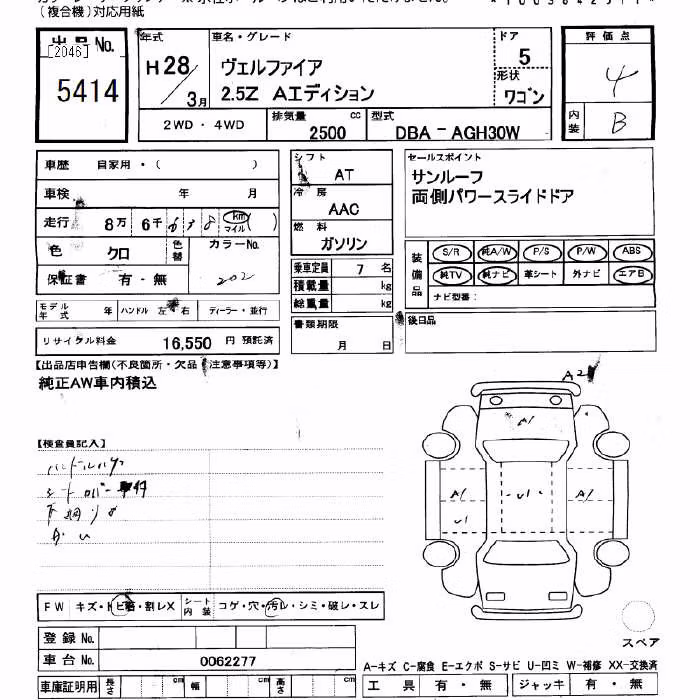 (複合機)対応用紙
出品 No.
[2046]
5414
年式
H28/3月
車名・グレード
ヴェルファイア
2.5Z Aエディション
ドア
5
形状
ワゴン
評価点
4
内装
B
2WD・4WD
排気量
2500 cc
型式
DBA - AGH30W
車歴 自家用・( )
車検 年 月
走行 8万 6千 638 km マイル ( )
色 クロ 色替 カラーNo.
保証書 有・無 202
モデル年式 年 ハンドル 左・右 ディーラー・並行
リサイクル料金 16,550 円 預託済
シフト
AT
冷房
AAC
燃料
ガソリン
乗車定員 7 名
積載量 kg
総重量 kg
書類期限
月 日
セールスポイント
サンルーフ
両側パワースライドドア
装備品
S/R 純A/W P/S P/W ABS
純TV 純ナビ 革シート 外ナビ エアB
ナビ型番:
後日品
【出品店申告欄(不良箇所・欠品 注意事項等)】
純正AW車内積込
【検査員記入】
A2
A1
A1
U1
U1
A1
FW キズ・トビ石・割レX シート内装 コゲ・穴・汚レ・シミ・破レ・スレ
登録 No.
車台 No. 0062277
車庫証明用 長さ cm 幅 cm 高さ cm
スペア
A-キズ C-腐食 E-エクボ S-サビ U-凹ミ W-補修 XX-交換済
工具 有・無 ジャッキ 有・無